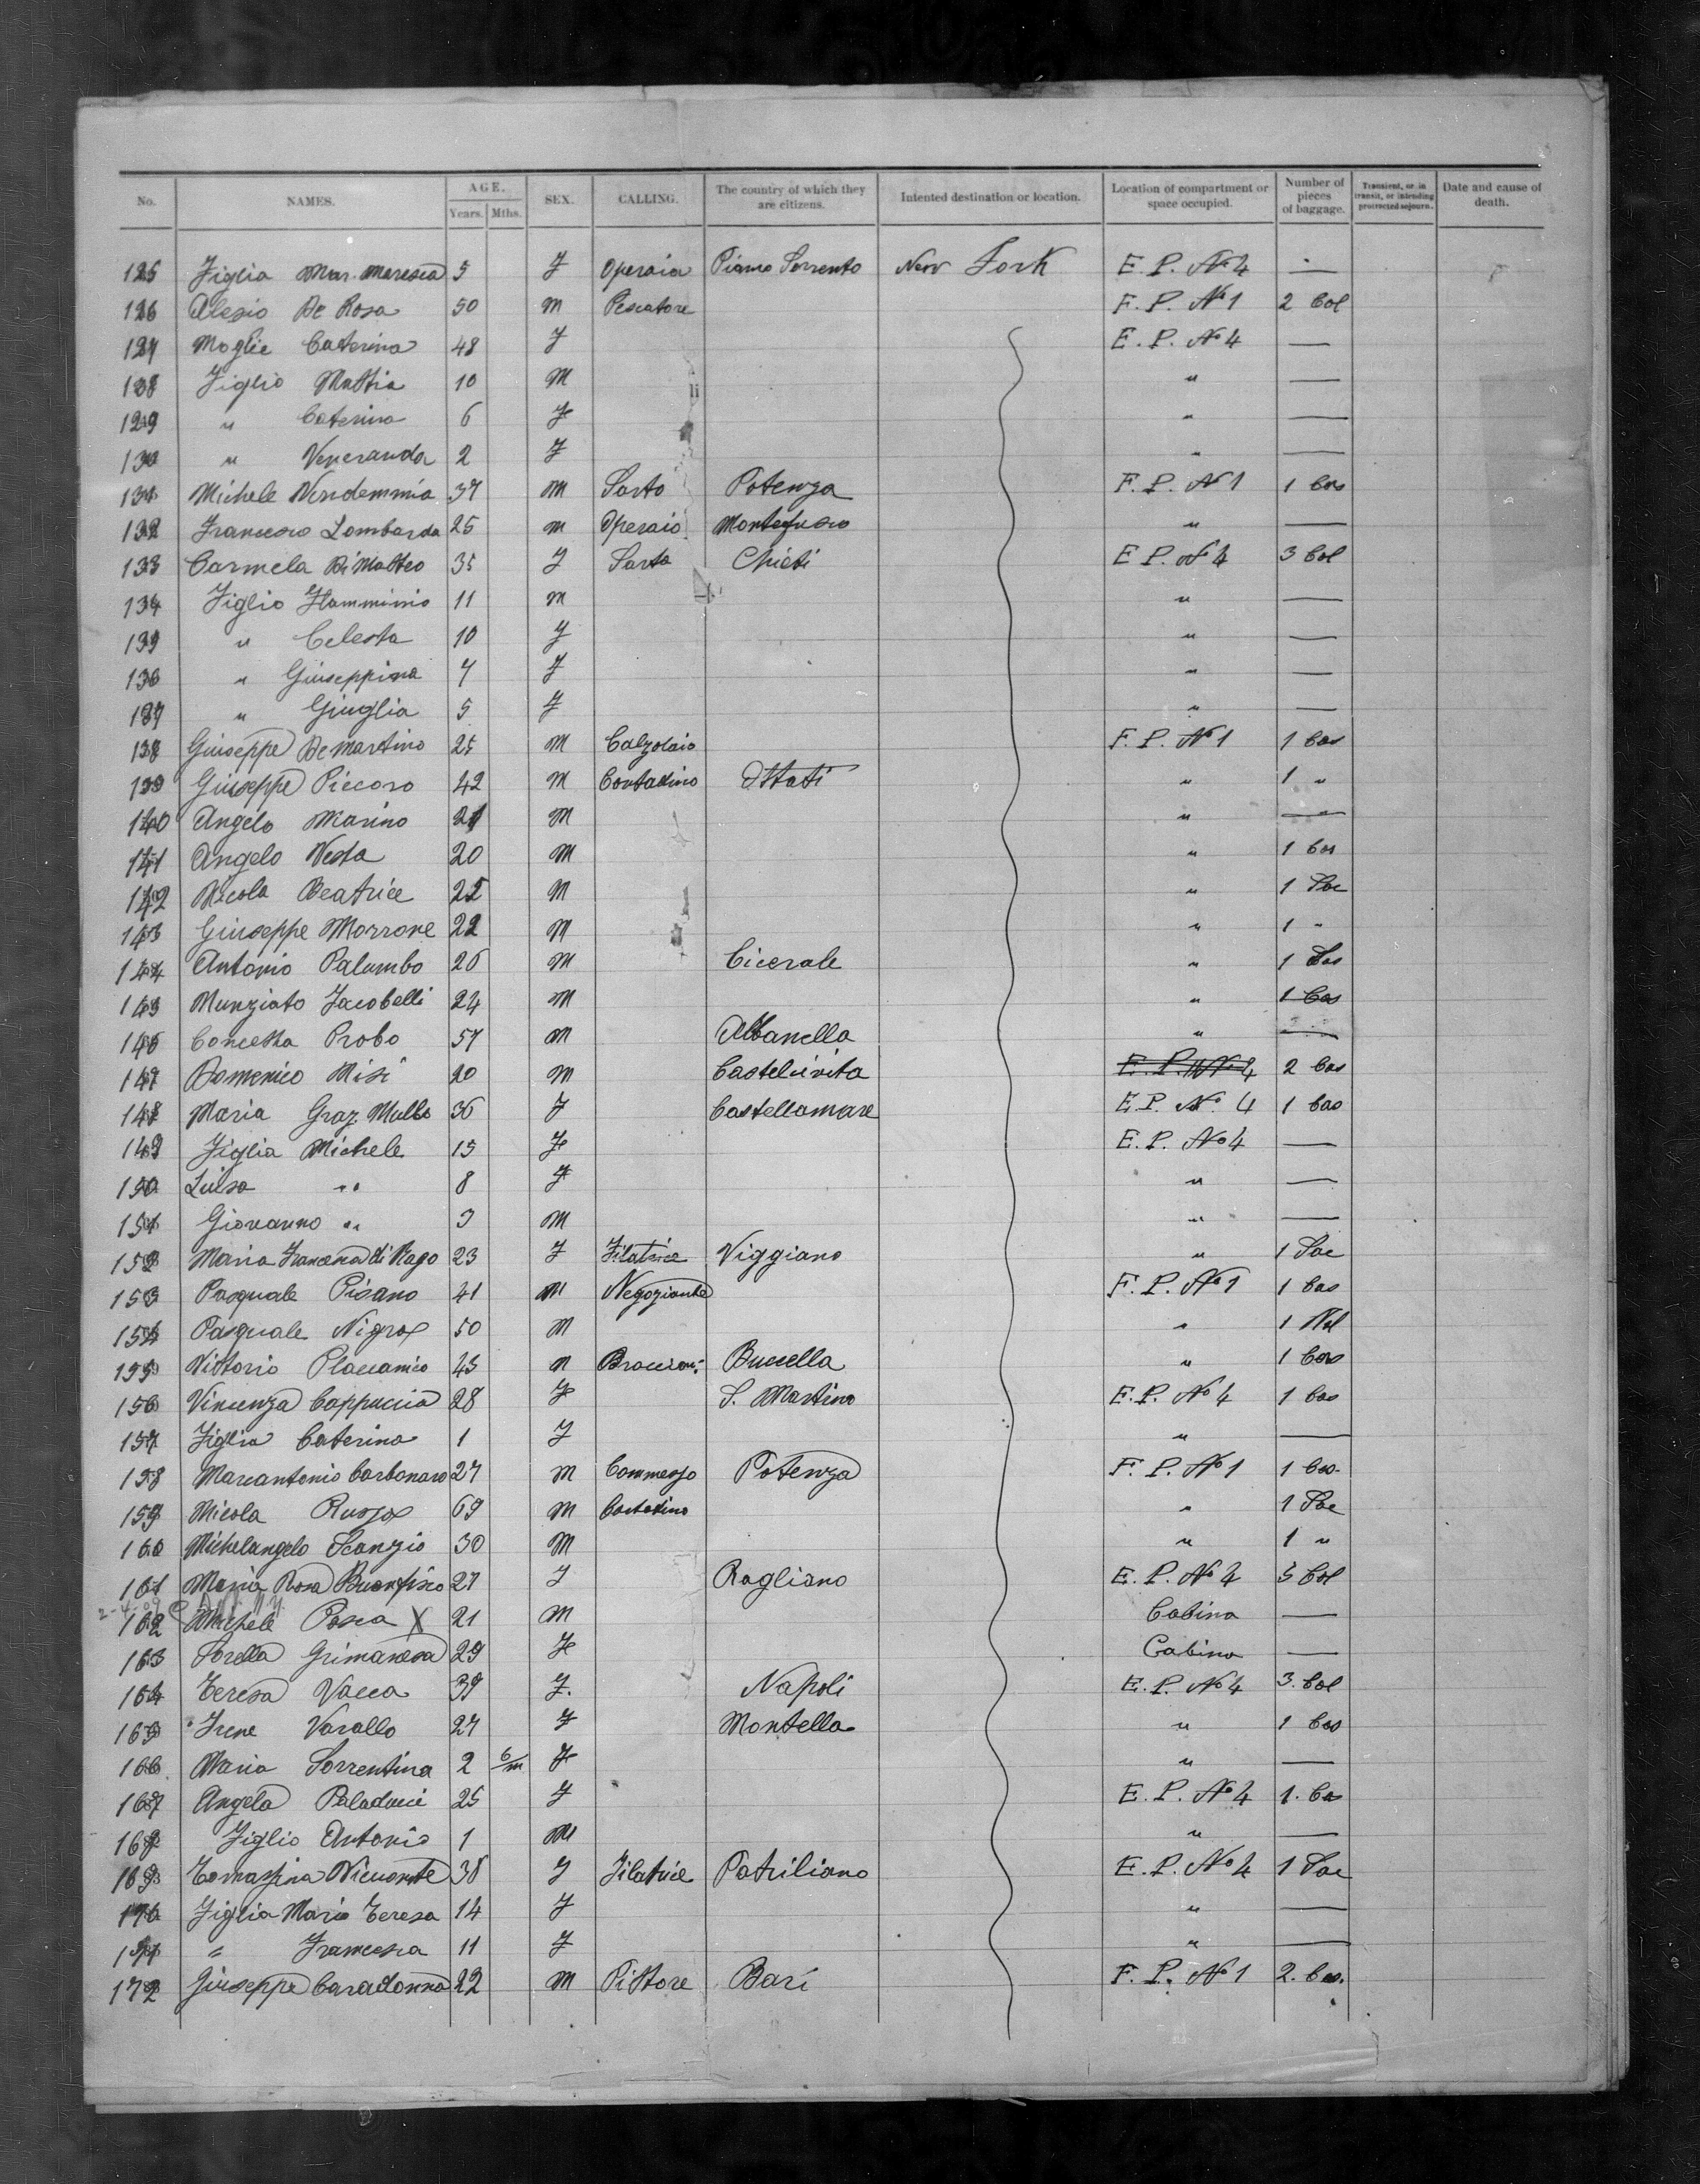 No. NAMES. AGE. Years. Mths. SEX. CALLING. The country of which they are citizens. Intented destination or location. Location of compartment or space occupied. Number of pieces of baggage. Transient, or in transit, or intending protracted sojourn. Date and cause of death.
125 Figlia Mar. Maresca 5 F Operaia Piano Sorrento New York E. P. No 4 —
126 Alesio De Rosa 50 M Pescatore F. P. No 1 2 Col
127 Moglie Caterina 48 F E. P. No 4 —
128 Figlio Mattia 10 M " —
129 " Caterina 6 F " —
130 " Veneranda 2 F " —
131 Michele Vendemmia 37 M Sarto Potenza F. P. No 1 1 Cas
132 Francesco Lombarda 25 M Operaio Montefusco " —
133 Carmela Di Matteo 35 F Sarta Chieti E. P. No 4 3 Col
134 Figlio Flamminio 11 M " —
135 " Celesta 10 F " —
136 " Giuseppina 7 F " —
137 " Giuglia 5 F " —
138 Giuseppe De Martino 25 M Calzolaio F. P. No 1 1 Cas
139 Giuseppe Piccoro 42 M Contadino Ottati " 1 "
140 Angelo Marino 21 M " —
141 Angelo Vesta 20 M " 1 Cas
142 Nicola Beatrice 25 M " 1 Sac
143 Giuseppe Morrone 22 M " 1 "
144 Antonio Palumbo 26 M Cicerale " 1
145 Nunziato Jacobelli 24 M " 1 Cas
146 Concetta Probo 57 M Albanella " —
147 Domenico Misi 20 M Castelcivita E. P. No 4 2 Cas
148 Maria Graz. Mullo 36 F Castellamare E. P. No. 4 1 Cas
149 Figlia Michele 15 F E. P. No 4 —
150 Luisa " 8 F " —
151 Giovanno " 3 M " —
152 Maria Francesca di Nago 23 F Filatrice Viggiano " 1 Sac
153 Pasquale Pisano 41 M Negoziante F. P. No 1 1 Cas
154 Pasquale Nigro 50 M " 1
155 Vittorio Placcamico 45 M Braccian: Buccella " 1 Cas
156 Vincenza Cappuccia 28 F S. Martino E. P. No 4 1 Cas
157 Figlia Caterina 1 F " —
158 Marcantonio Carbonaro 27 M Commesso Potenza F. P. No 1 1 Cas.
159 Nicola Russo 69 M Contadino " 1 Sac
160 Michelangelo Scanzio 30 M " 1 "
161 Maria Rosa Buonfisco 27 F Rogliano E. P. No 4 5 Col
2-4-09
162 Michele Posca X 21 M Cabina —
163 Sorella Grimanesa 29 F Cabina —
164 Teresa Vacca 39 F. Napoli E. P. No 4 3. Col
165 Irene Varallo 27 F Montella " 1 Cas
166 Maria Sorrentina 2 6/m F " —
167 Angela Paladuci 25 F E. P. No 4 1. Cas
168 Figlio Antonio 1 M " —
169 Tomasina 38 F Filatrice Patriliano E. P. No 4 1 Sac
170 Figlia Maria Teresa 14 F " —
171 " Francesca 11 F " —
172 Giuseppe Caradonna 22 M Pittore Bari F. P. No 1 2. Cas.